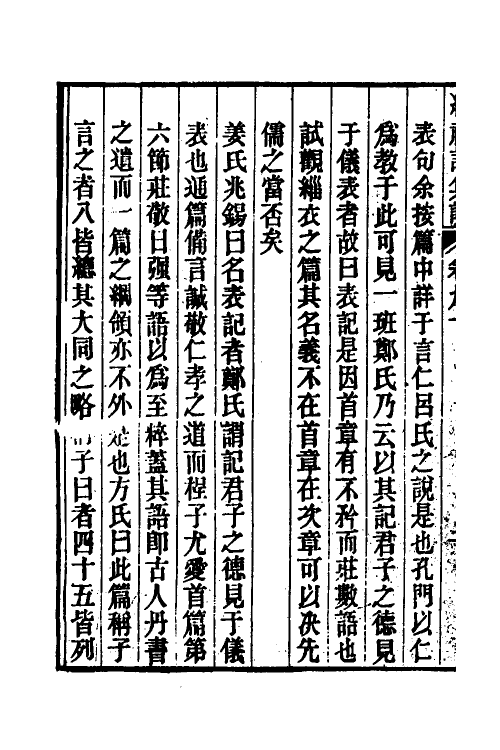 表句余按篇中詳于言仁呂氏之說是也孔門以仁
爲教于此可見一班鄭氏乃云以其記君子之德見
于儀表者故曰表記是因首章有不矜而莊數語也
試觀緇衣之篇其名義不在首章在次章可以决先
儒之當否矣
姜氏兆錫曰名表記者鄭氏謂記君子之德見于儀
表也通篇備言誠敬仁孝之道而程子尤愛首篇第
六節莊敬日强等語以爲至粹蓋其語卽古人丹書
之遺而一篇之綱領亦不外是也方氏曰此篇稱子
言之者八皆總其大同之略 子曰者四十五皆列